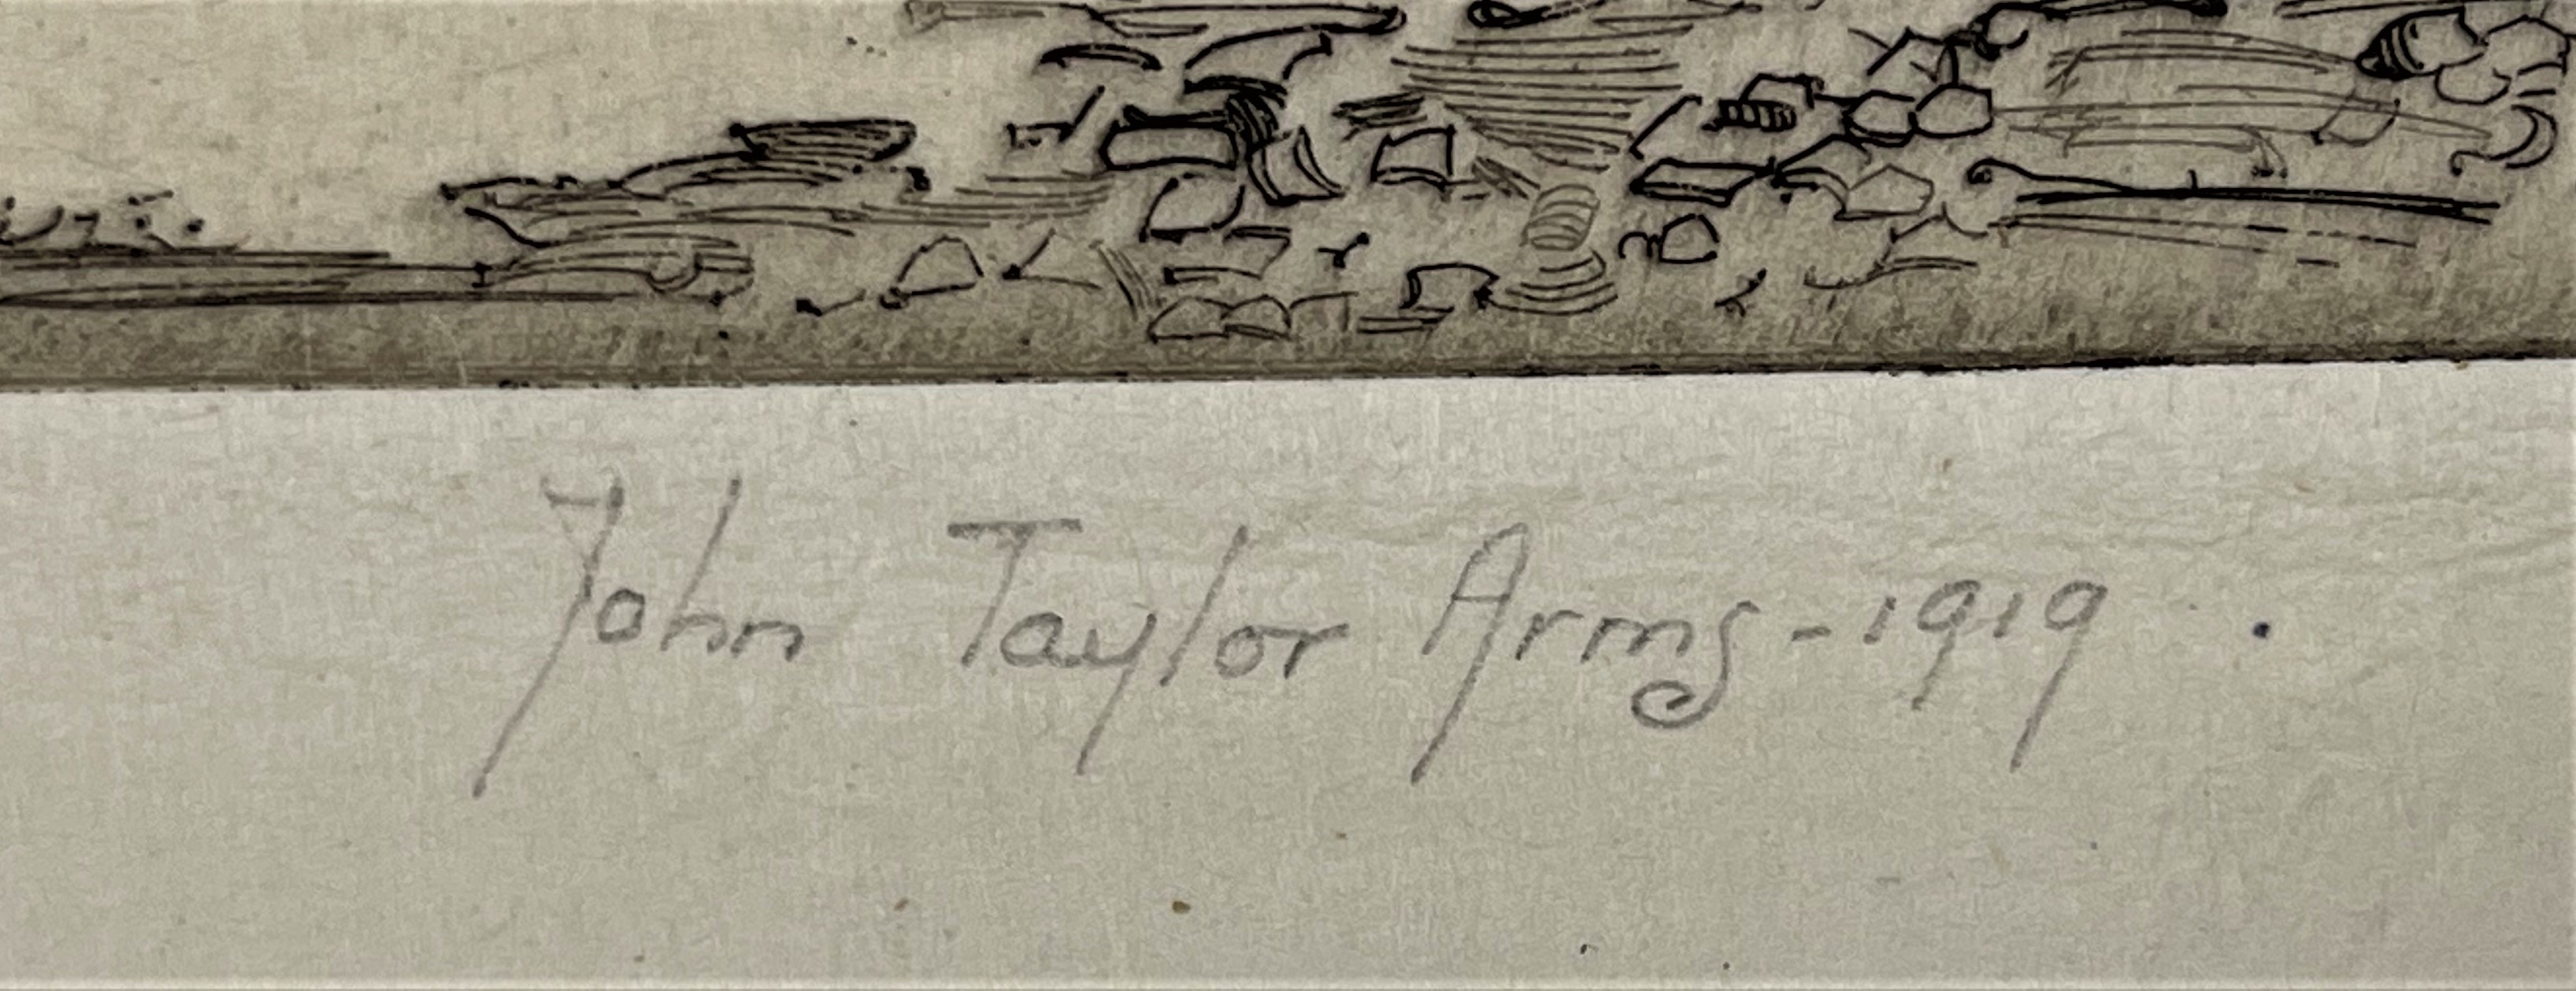 John Taylor Arms-1919.